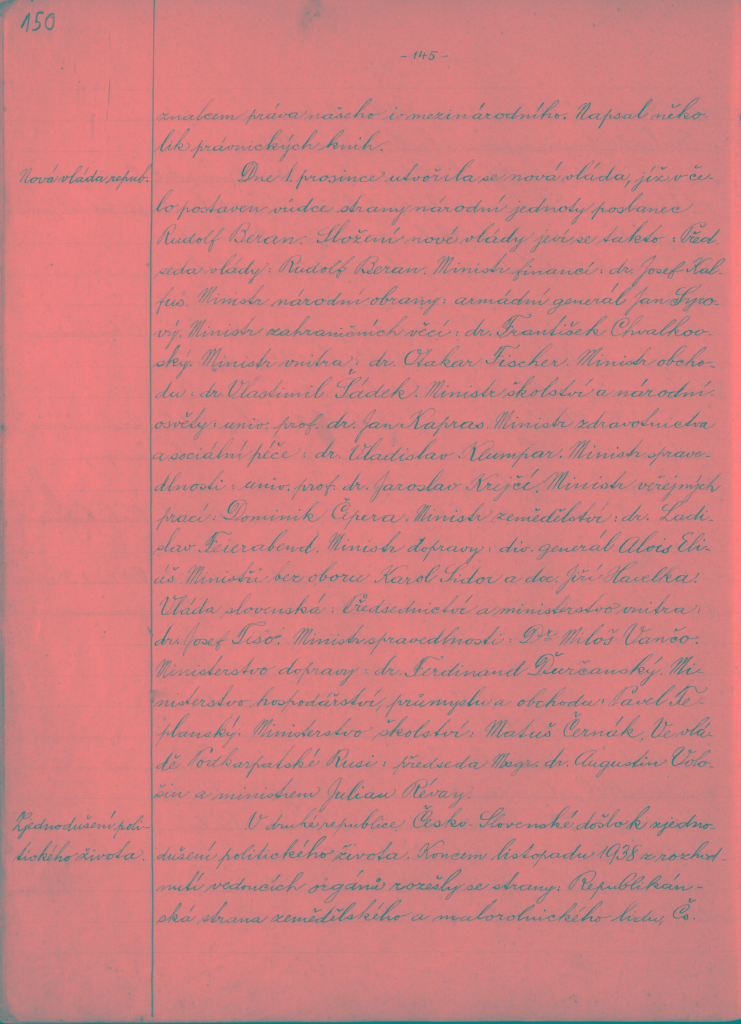 150
- 145 -
znalcem práva našeho i mezinárodního. Napsal něko-
lik právnických knih.
Nová vláda repub.
Dne 1. prosince utvořila se nová vláda, jíž v če-
lo postaven vůdce strany národní jednoty poslanec
Rudolf Beran. Složení nové vlády jeví se takto: Před
seda vlády: Rudolf Beran. Ministr financí: dr. Josef Kal-
fus. Ministr národní obrany: armádní generál Jan Syro-
vý. Ministr zahraničních věcí: dr. František Chvalkov-
ský. Ministr vnitra: dr. Otakar Fischer. Ministr obcho-
du: dr. Vlastimil Šádek. Ministr školství a národní
osvěty: univ. prof. dr. Jan Kapras. Ministr zdravotnictva
a sociální péče: dr. Vladislav Klumpar. Ministr sprave-
dlnosti: univ. prof. dr. Jaroslav Krejčí. Ministr veřejných
prací: Dominik Čipera. Ministr zemědělství: dr. Ladi-
slav Feierabend. Ministr dopravy: div. generál Alois Eli-
áš. Ministři bez oboru Karol Sidor a dr. Jiří Havelka.
Vláda slovenská: Předsednictví a ministerstvo vnitra:
dr. Josef Tiso. Ministr spravedlnosti: Dr. Miloš Vančo.
Ministerstvo dopravy: dr. Ferdinand Ďurčanský. Mi-
nisterstvo hospodářství, průmyslu a obchodu: Pavel Te-
planský. Ministerstvo školství: Matuš Černák. Ve vlá-
dě Podkarpatské Rusi: předseda Msgr. dr. Augustin Volo-
šin a ministrem Julian Révay.
Zjednodušení poli-
tického života.
V druhé republice Česko-Slovenské došlo k zjedno-
dušení politického života. Koncem listopadu 1938 z rozhod-
nutí vedoucích orgánů rozešly se strany: Republikán-
ská strana zemědělského a malorolnického lidu, Čs.